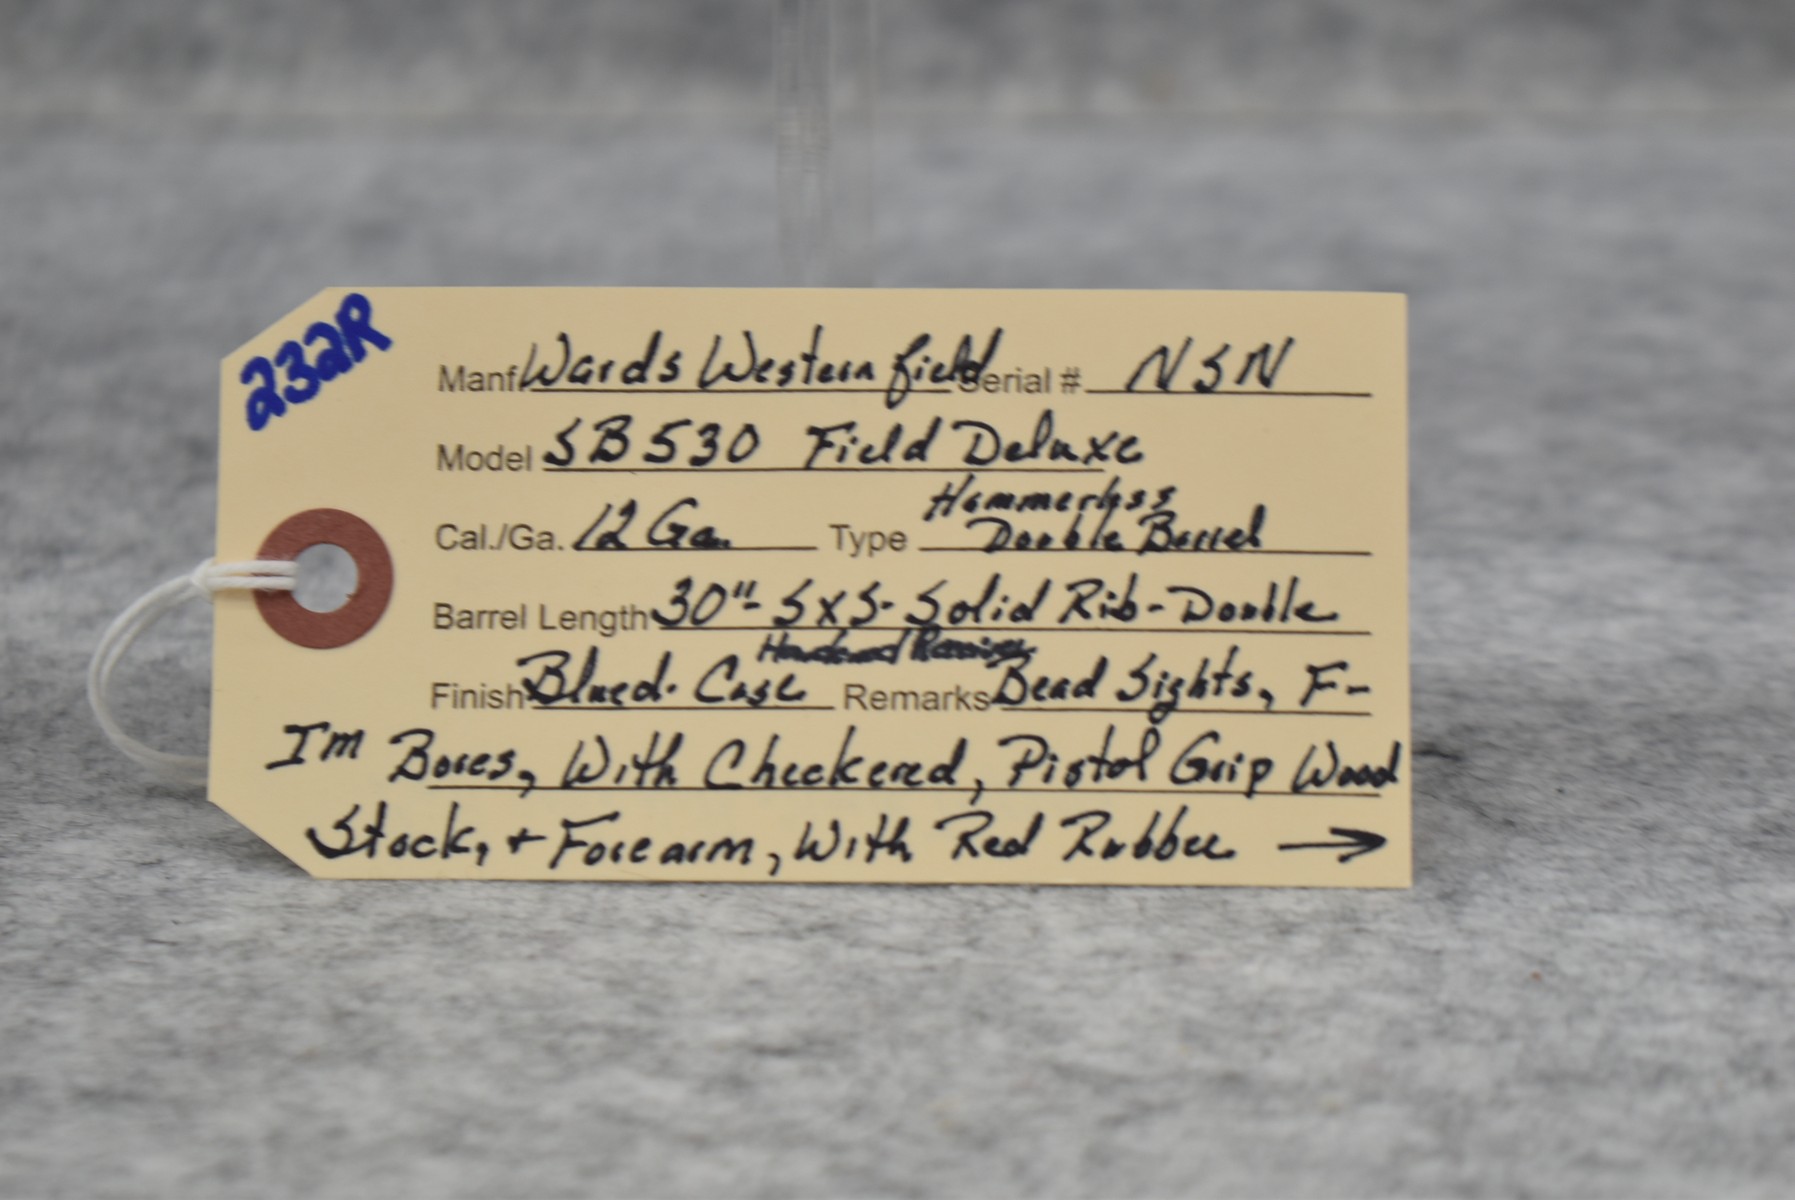 232R
Manf. Wards Western Field Serial # NSN
Model SB530 Field Deluxe
Hammerless
Cal./Ga. 12 Ga. Type Double Barrel
Barrel Length 30"- SXS- Solid Rib - Double
Hardened Receiver
Finish Blued. Case Remarks Bead Sights, F-
Im Bores, With Checkered, Pistol Grip Wood
Stock, + Forearm, With Red Rubber →